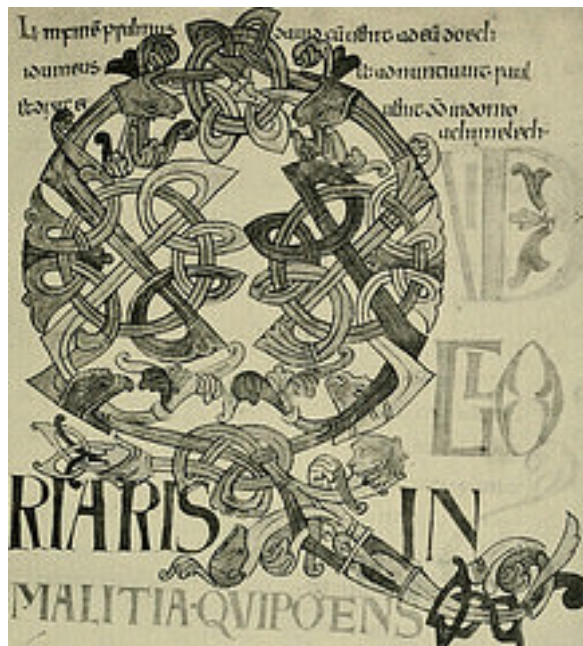 In finē psalmus dauid cū uenit ad eū doech
idumeus Et adnuntiauit saul
et dixit ei uenit dd̄ in domo
achimelech
Q VID
GLO
RIARIS IN
MALITIA·QVIPOENS